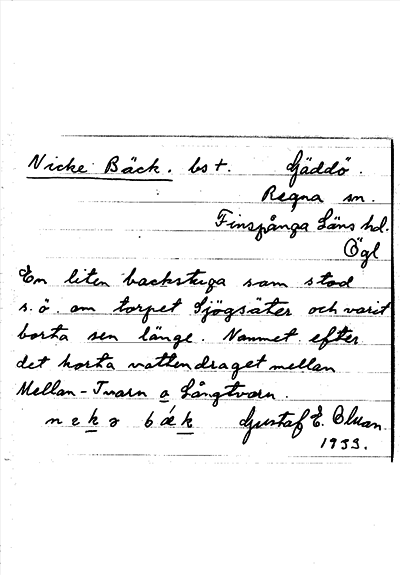 Nicke Bäck. bs t. Gäddö.
Regna sn.
Finspånga Läns hd.
Ögl
En liten backstuga som stod
s.ö. om torpet Sjögsäter och varit
borta sen länge. Namnet efter
det korta vattendraget mellan
Mellan-Tvarn o Långtvarn.
nekə bǽk Gustaf E. Elman.
1933.